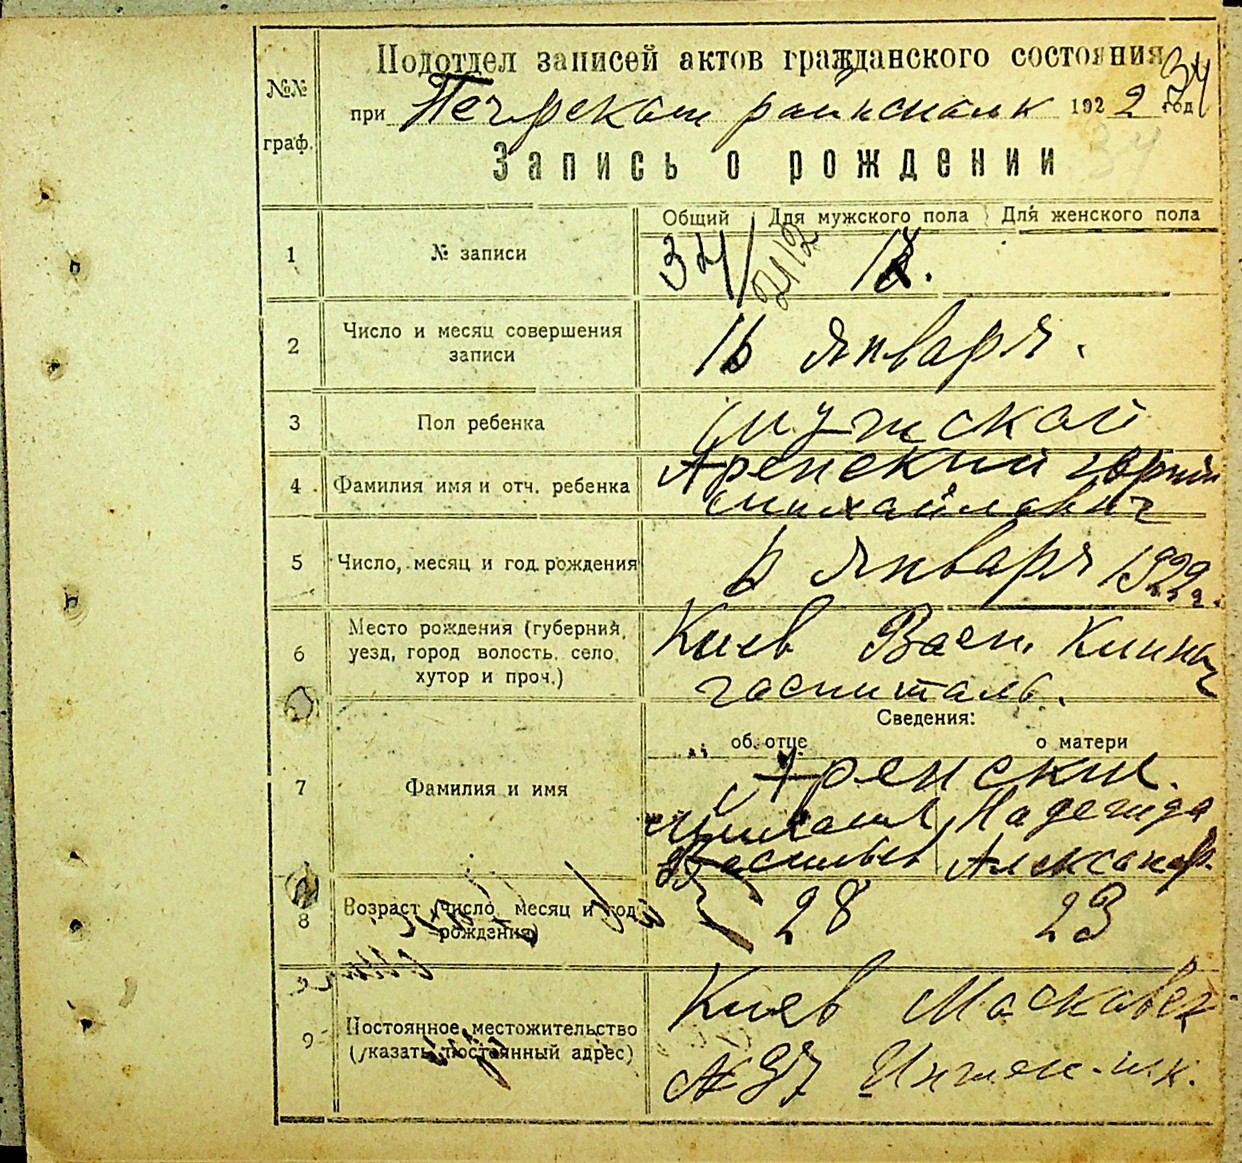 Подотдел записей актов гражданского состояния
34
№№
граф.
при Печерском 1922 год
Запись о рождении
34
Общий Для мужского пола Для женского пола
1 № записи 34
2 Число и месяц совершения
записи
16 января.
3 Пол ребенка мужской
4 Фамилия имя и отч. ребенка Аренский
Михайлович
5 Число, месяц и год рождения 6 января 1922 г.
6 Место рождения (губерния,
уезд, город волость, село,
хутор и проч.)
Киев Воен.
госпиталь.
Сведения:
об отце о матери
7 Фамилия и имя
Аренские.
Михаил Надежда
Васильев Александр.
8 Возраст (число, месяц и год
рождения)
28 23
9 Постоянное местожительство
(указать постоянный адрес)
Киев
№ 37 Инжен. шк.